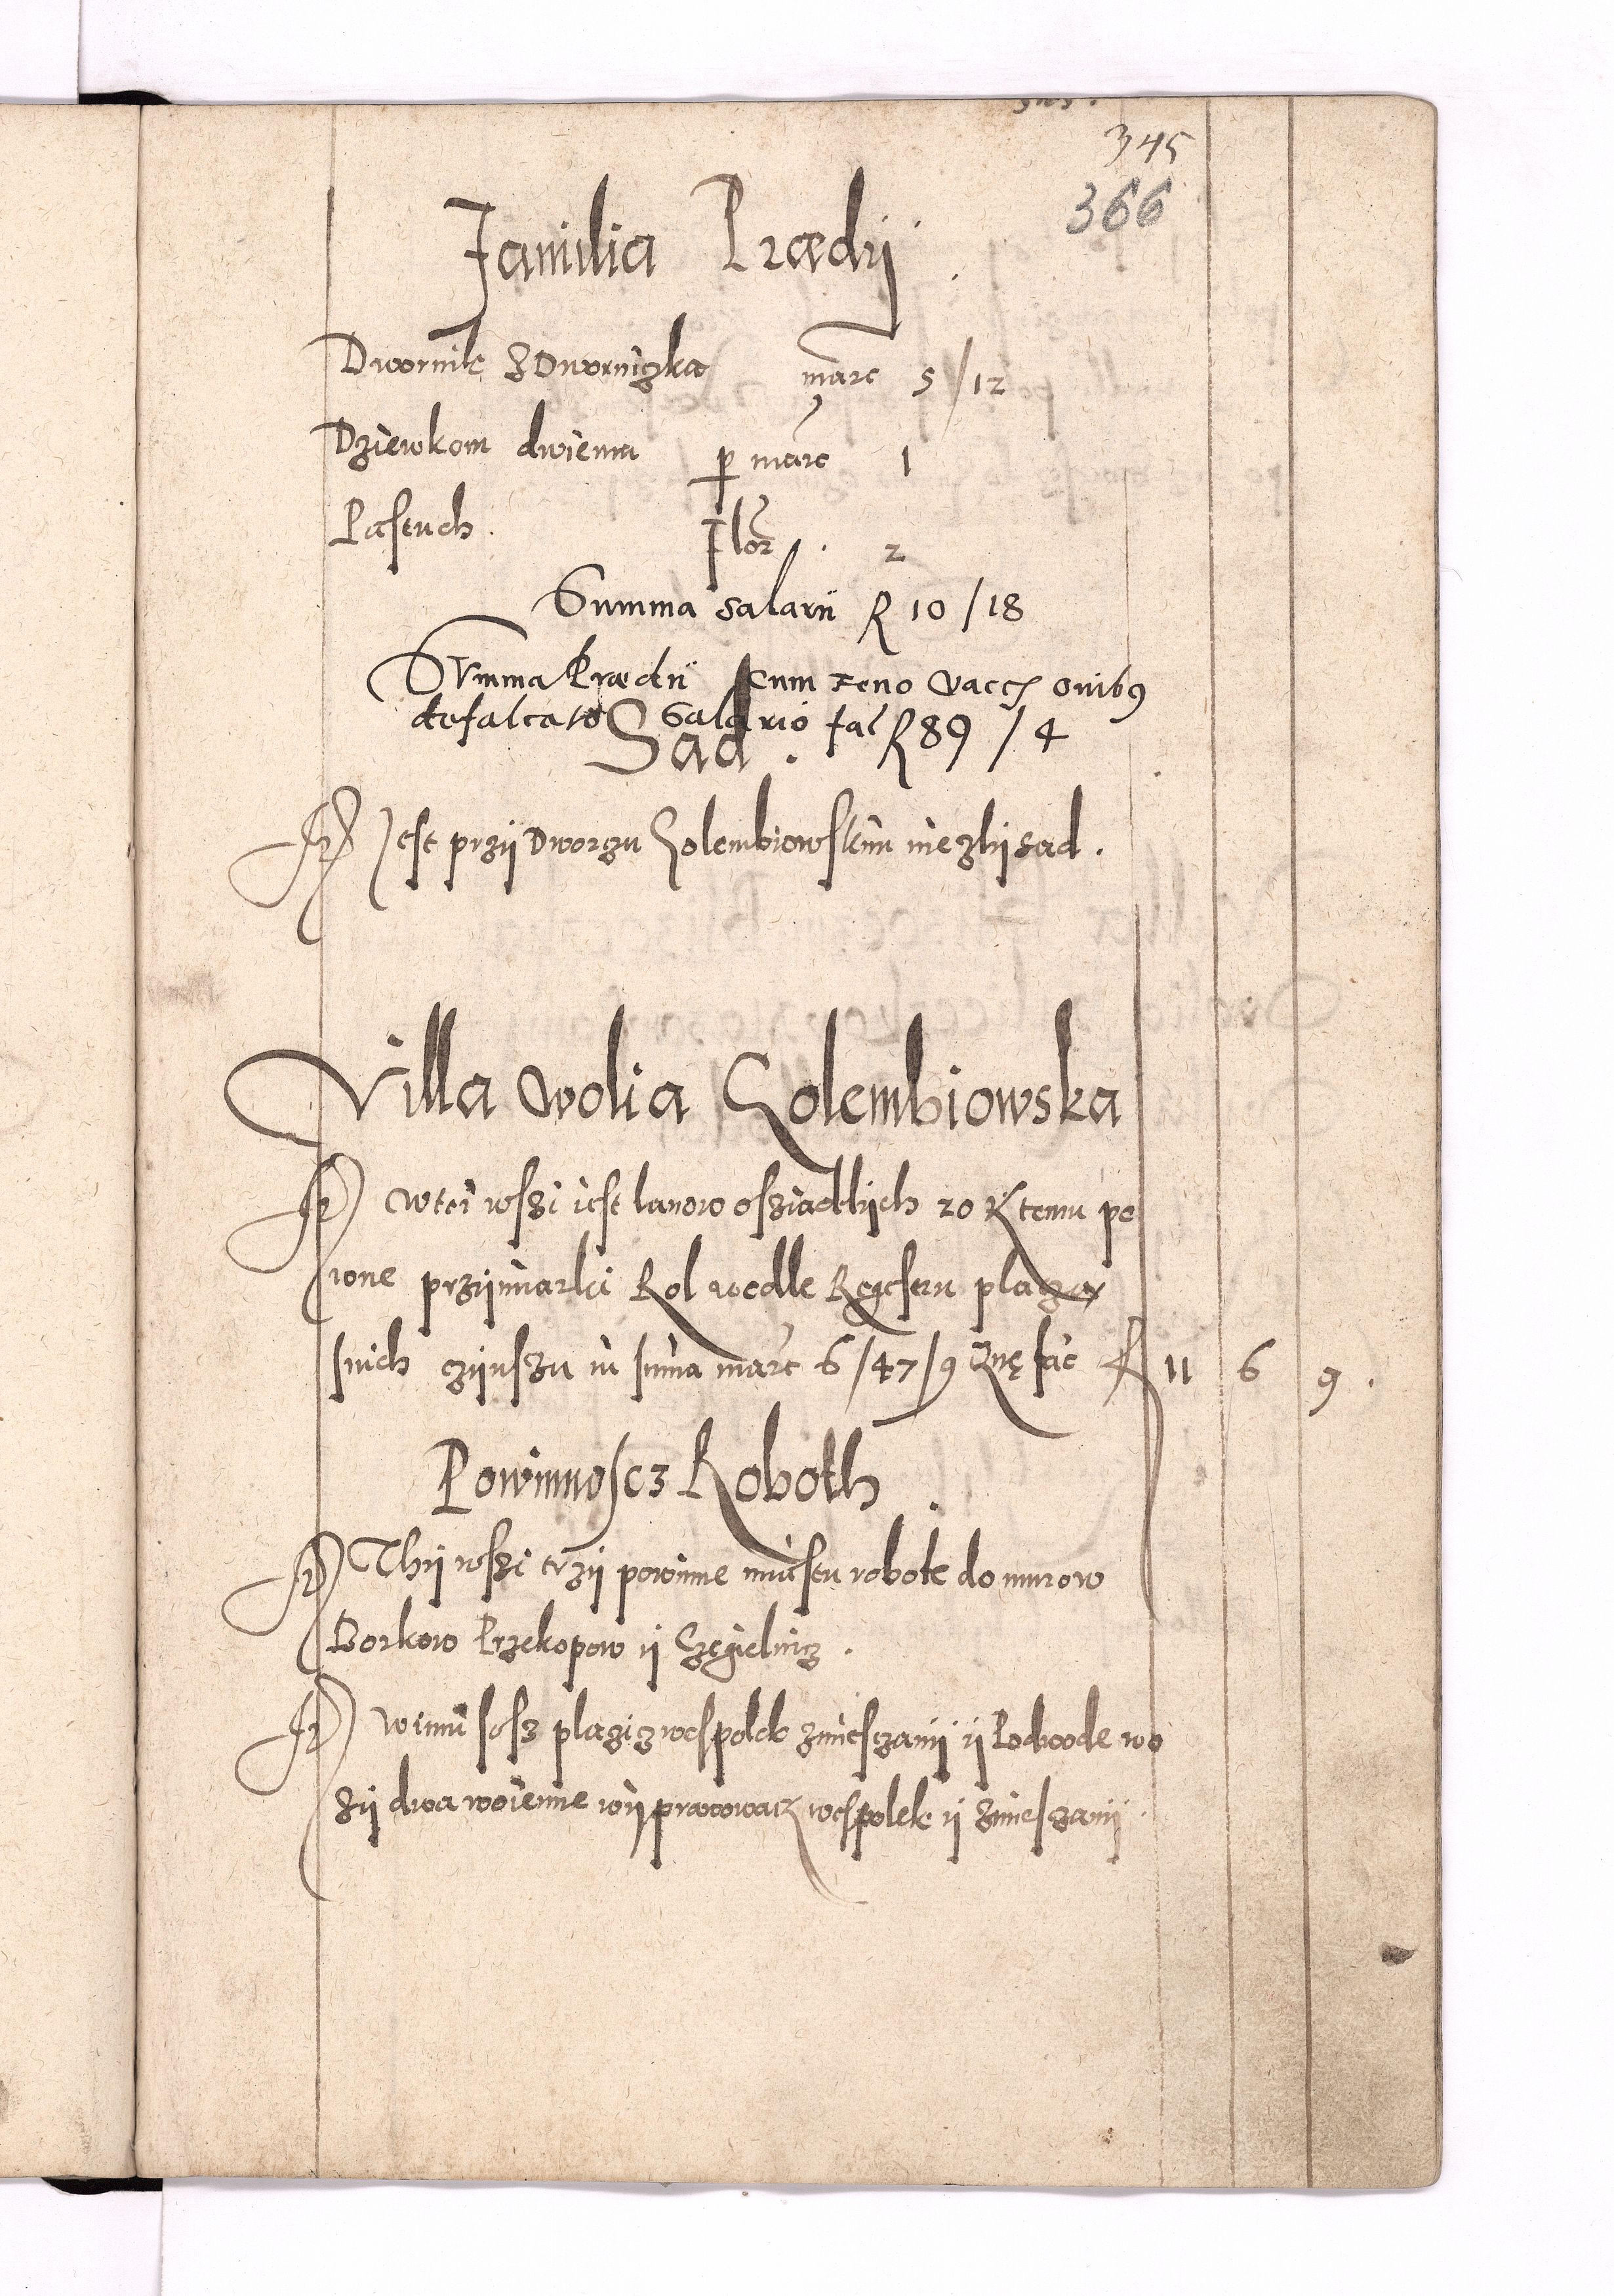 345
366
Familia Prædij
Dwornik z Dworniczka marc 5/12
Dziewkom dwiema per marc 1
Pastuch. Flor. 2
Summa salarii R 10/18
Summa Prædii cum feno vaccis ovibus
defalcato Salario fac R 89/4
Sad.
It Jest przij Dworzu Golembiowskim niezlij sad.
Villa Wolia Golembiowska
It W tei wszi iest lanow osziadlijch 20 K temu pe
wne przijmiarki Rol wedle Regestru placza
snich czijnszu in suma marc 6/47/9 Quę fac R 11 6 9.
Powinnoscz Roboth.
It Thij wszi trzij powinne miastu robote do murow
Borkow Przekopow ij Czegielnicz.
It Winni szosz placzicz wespolek zmiesczanij ij Podwode wo
zij dwa woienne wijprawowacz wespolek ij zmieszanij.